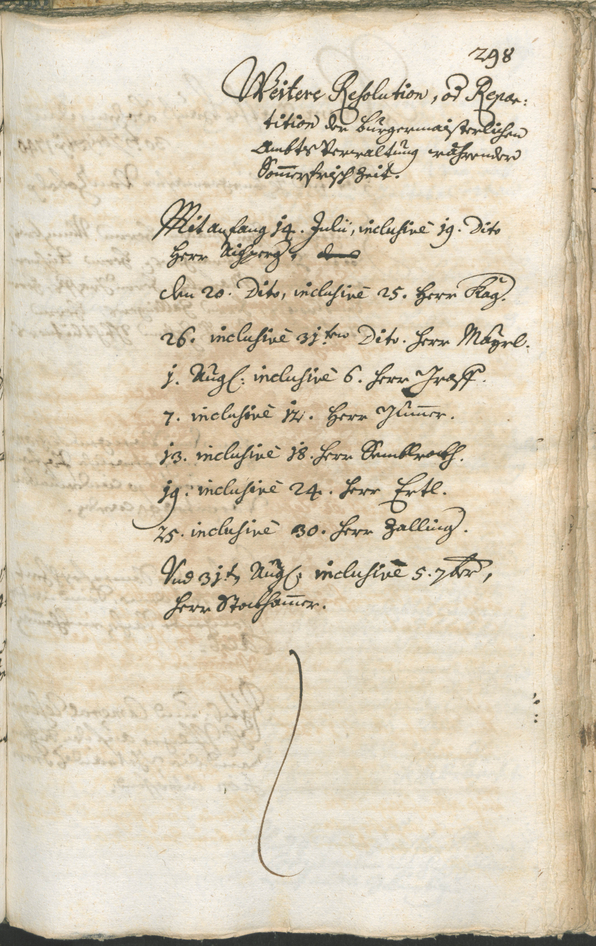 298
Weitere Resolution, od Repar:
tition der burgermaisterlichen
Ambts Verwaltung wehrender
Sommerfrisch Zeit.
Mit anfang 14. Julii, inclusivè 19. Dito
Herr
den 20. Dito, inclusivè 25. Herr Kag.
26. inclusivè 31ten Dito. Herr Mayrl.
1. Aug: inclusivè 6. Herr Graff.
7. inclusivè 12. Herr Gummer.
13. inclusivè 18. Herr
19. inclusivè 24. Herr Ertl.
25. inclusivè 30. Herr Zalling.
Und 31t Aug: inclusivè 5. 7ber,
Herr Stockhamer.